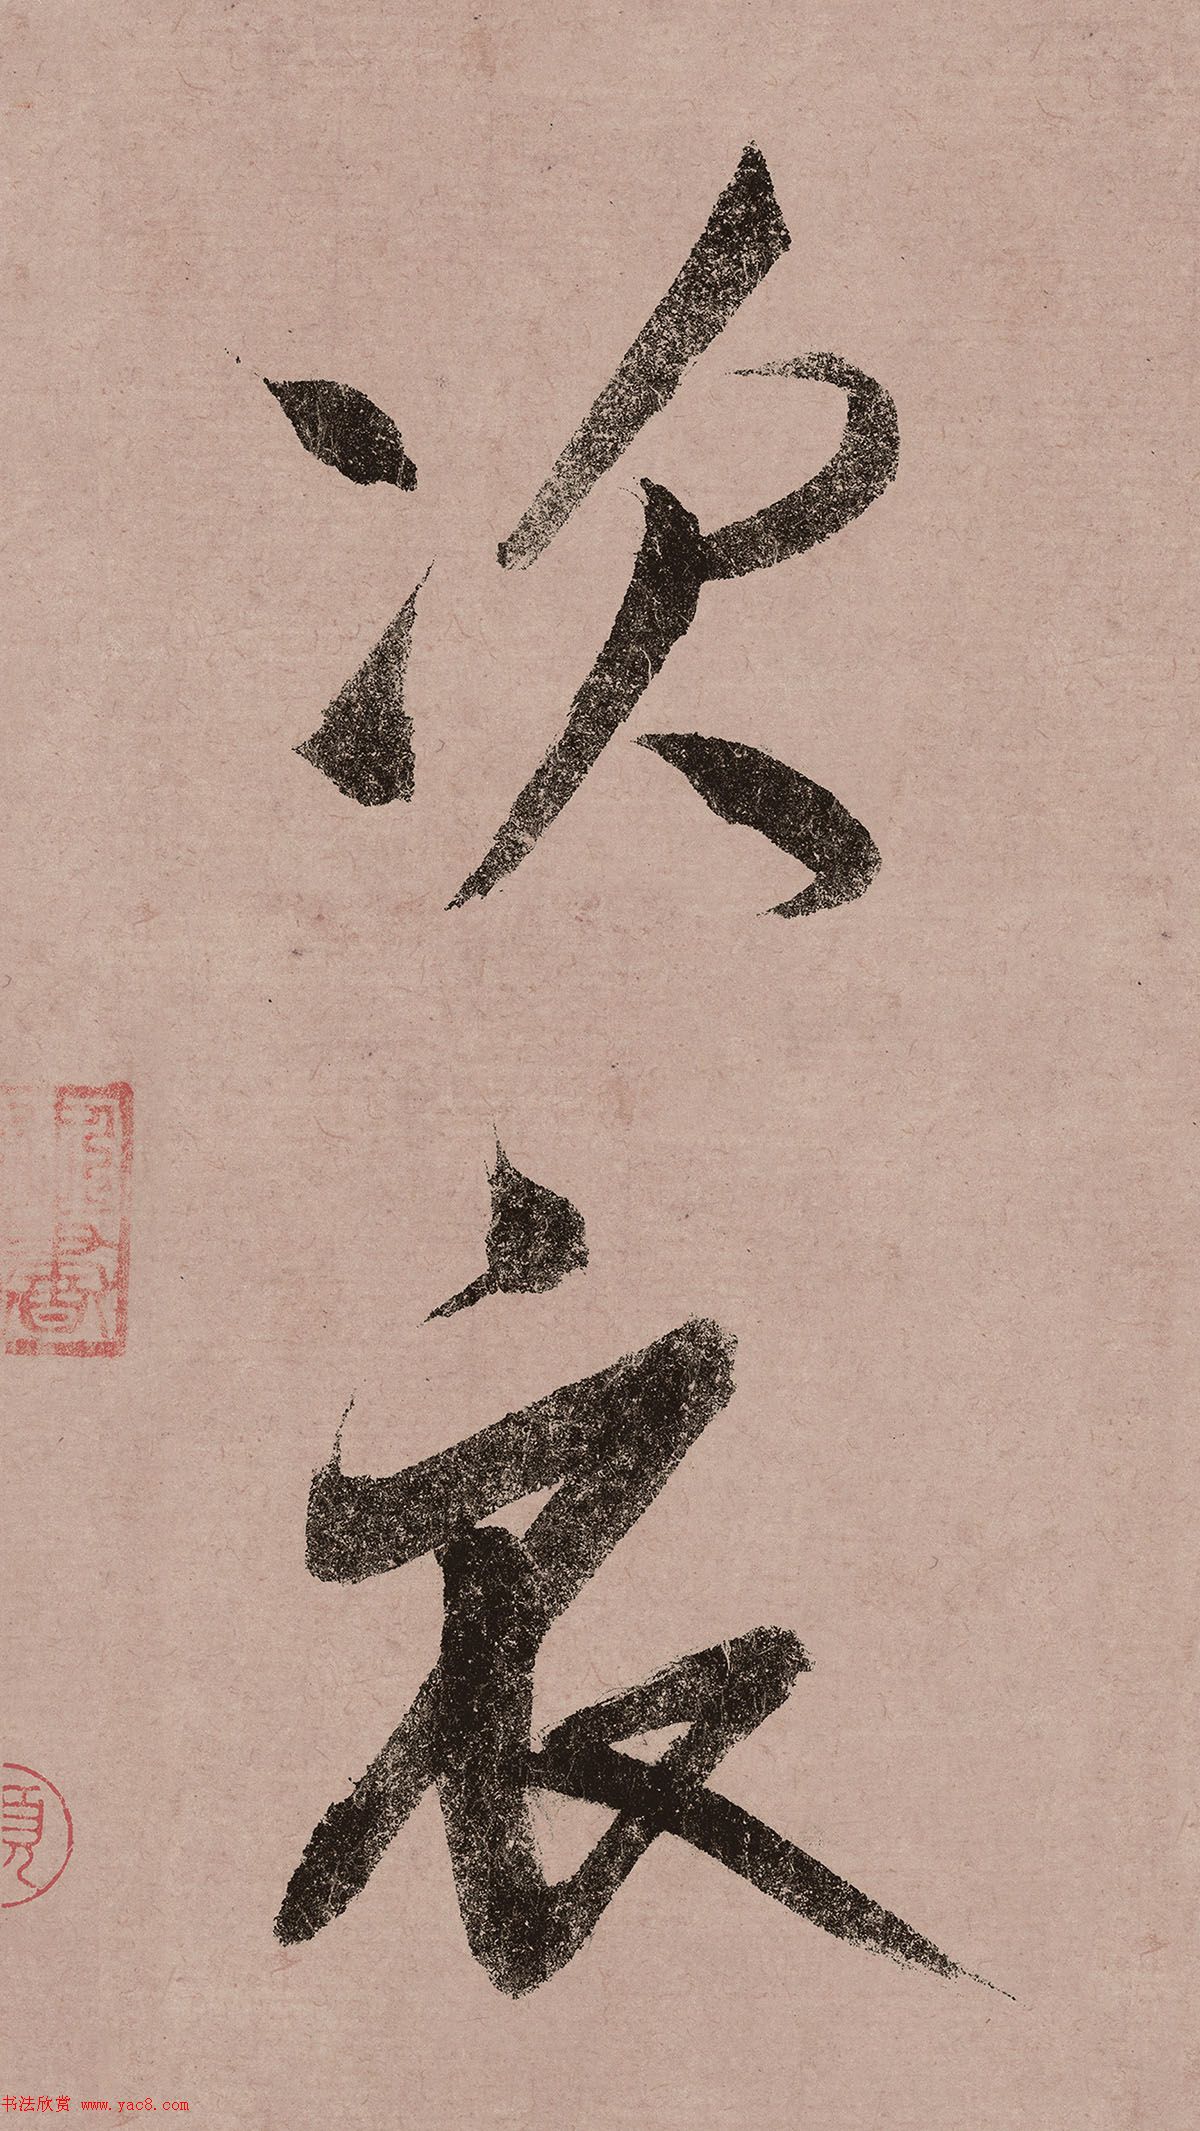 次
衣
书法欣赏 www.yac8.com